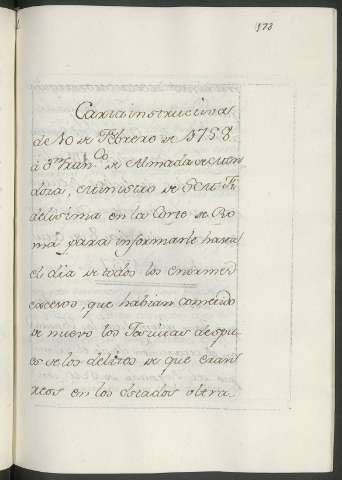 173
Carta instructiva
de 10 de Febrero de 1758
á Dⁿ Franᶜᵒ de Almada de Men
doza, Ministro de S. M. Fi
delisima en la Corte de Ro
ma para informarle hasta
el dia de todos los enormes
excesos, que habian cometido
de nuevo los Jesuitas despu
es de los delitos de que eran
reos en los Estados ultra